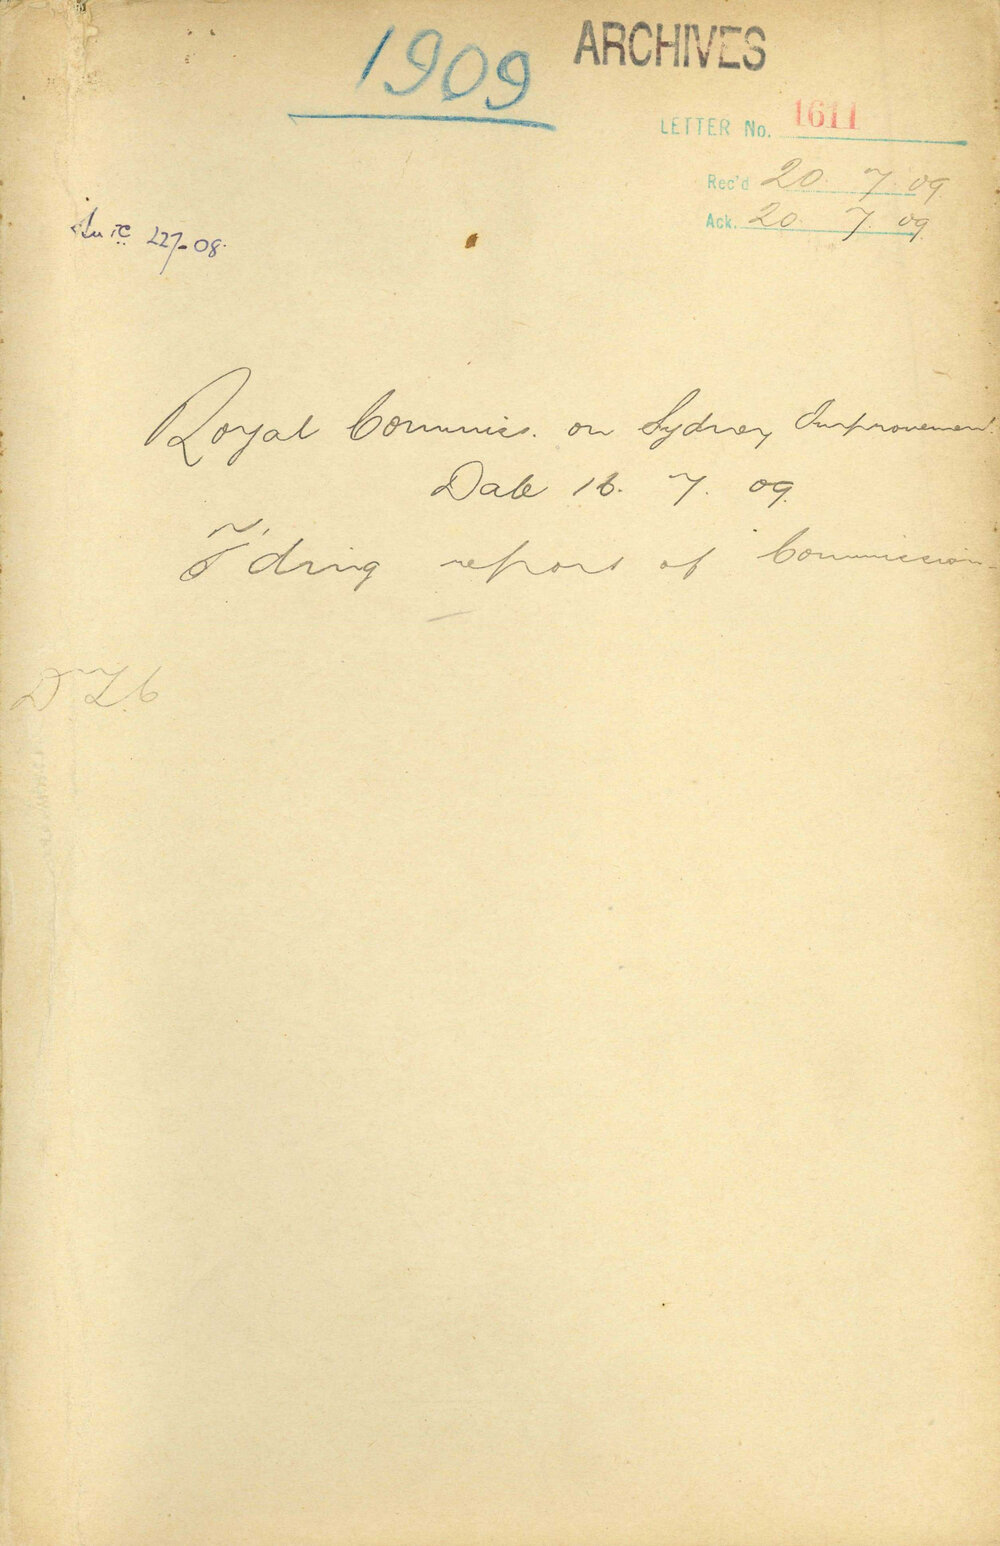 1909
ARCHIVES
LETTER No. 1611
Rec'd 20. 7. 09
Ack. 20. 7. 09
227-08.
Royal Commiss. on Sydney Improvement.
Date 16. 7. 09
F'dring report of Commission-